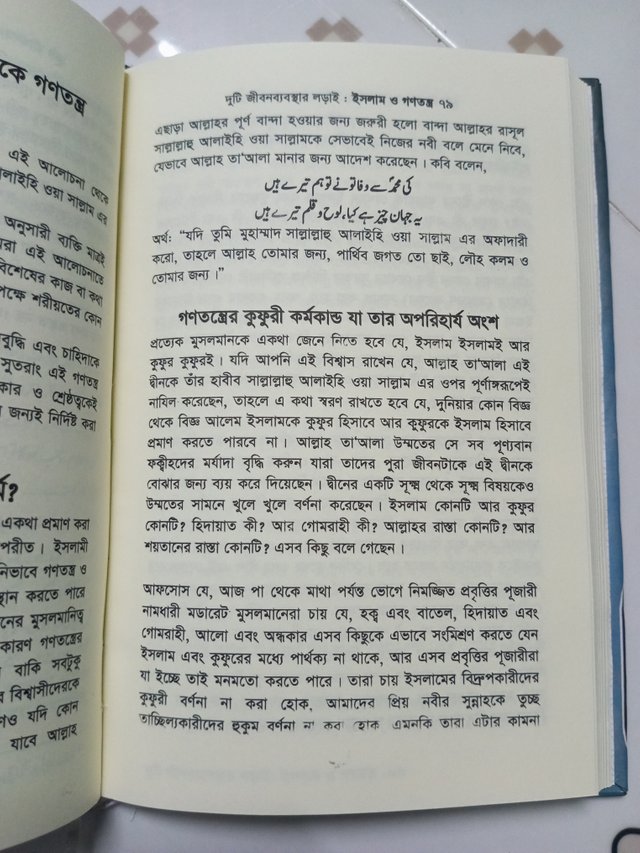 কে গণতন্ত্র
এই আলোচনা থেকে
লাইহি ওয়া সাল্লাম এর
অনুসারী ব্যক্তি মাত্রই
রা এই আলোচনাতে
বিশেষের কাজ বা কথা
পক্ষে শরীয়তের কোন
বুদ্ধি এবং চাহিদাকে
সুতরাং এই গণতন্ত্র
কার ও শ্রেষ্ঠত্বকেই
জন্যই নির্দিষ্ট করা
র্ম?
একথা প্রমাণ করা
পরীত। ইসলামী
নিভাবে গণতন্ত্র ও
স্থান করতে পারে
নের মুসলমানিত্ব
কারণ গণতন্ত্রের
বাকি সবটুকু
র বিশ্বাসীদেরকে
ণও যদি কোন
যাবে আল্লাহ
দুটি জীবনব্যবস্থার লড়াই : ইসলাম ও গণতন্ত্র ৭৯
এছাড়া আল্লাহর পূর্ণ বান্দা হওয়ার জন্য জরুরী হলো বান্দা আল্লাহর রাসূল
সাল্লাল্লাহু আলাইহি ওয়া সাল্লামকে সেভাবেই নিজের নবী বলে মেনে নিবে,
যেভাবে আল্লাহ তা'আলা মানার জন্য আদেশ করেছেন। কবি বলেন,
کی محمدؐ سے وفا تو نے تو ہم تیرے ہیں
یہ جہاں چیز ہے کیا، لوح و قلم تیرے ہیں
অর্থ: “যদি তুমি মুহাম্মাদ সাল্লাল্লাহু আলাইহি ওয়া সাল্লাম এর অফাদারী
করো, তাহলে আল্লাহ তোমার জন্য, পার্থিব জগত তো ছাই, লৌহ কলম ও
তোমার জন্য।”
গণতন্ত্রের কুফুরী কর্মকান্ড যা তার অপরিহার্য অংশ
প্রত্যেক মুসলমানকে একথা জেনে নিতে হবে যে, ইসলাম ইসলামই আর
কুফুর কুফুরই। যদি আপনি এই বিশ্বাস রাখেন যে, আল্লাহ তা'আলা এই
দ্বীনকে তাঁর হাবীব সাল্লাল্লাহু আলাইহি ওয়া সাল্লাম এর ওপর পূর্ণাঙ্গরূপেই
নাযিল করেছেন, তাহলে এ কথা স্বরণ রাখতে হবে যে, দুনিয়ার কোন বিজ্ঞ
থেকে বিজ্ঞ আলেম ইসলামকে কুফুর হিসাবে আর কুফুরকে ইসলাম হিসাবে
প্রমাণ করতে পারবে না। আল্লাহ তা'আলা উম্মতের সে সব পূণ্যবান
ফক্বীহদের মর্যাদা বৃদ্ধি করুন যারা তাদের পুরা জীবনটাকে এই দ্বীনকে
বোঝার জন্য ব্যয় করে দিয়েছেন। দ্বীনের একটি সূক্ষ্ম থেকে সূক্ষ্ম বিষয়কেও
উম্মতের সামনে খুলে খুলে বর্ণনা করেছেন। ইসলাম কোনটি আর কুফুর
কোনটি? হিদায়াত কী? আর গোমরাহী কী? আল্লাহর রাস্তা কোনটি? আর
শয়তানের রাস্তা কোনটি? এসব কিছু বলে গেছেন।
আফসোস যে, আজ পা থেকে মাথা পর্যন্ত ভোগে নিমজ্জিত প্রবৃত্তির পূজারী
নামধারী মডারেট মুসলমানেরা চায় যে, হক্ব এবং বাতেল, হিদায়াত এবং
গোমরাহী, আলো এবং অন্ধকার এসব কিছুকে এভাবে সংমিশ্রণ করতে যেন
ইসলাম এবং কুফুরের মধ্যে পার্থক্য না থাকে, আর এসব প্রবৃত্তির পূজারীরা
যা ইচ্ছে তাই মনমতো করতে পারে। তারা চায় ইসলামের বিদ্রুপকারীদের
কুফুরী বর্ণনা না করা হোক, আমাদের প্রিয় নবীর সুন্নাহকে তুচ্ছ
তাচ্ছিল্যকারীদের হুকুম বর্ণনা না করা হোক এমনকি তারা এটার কামনা